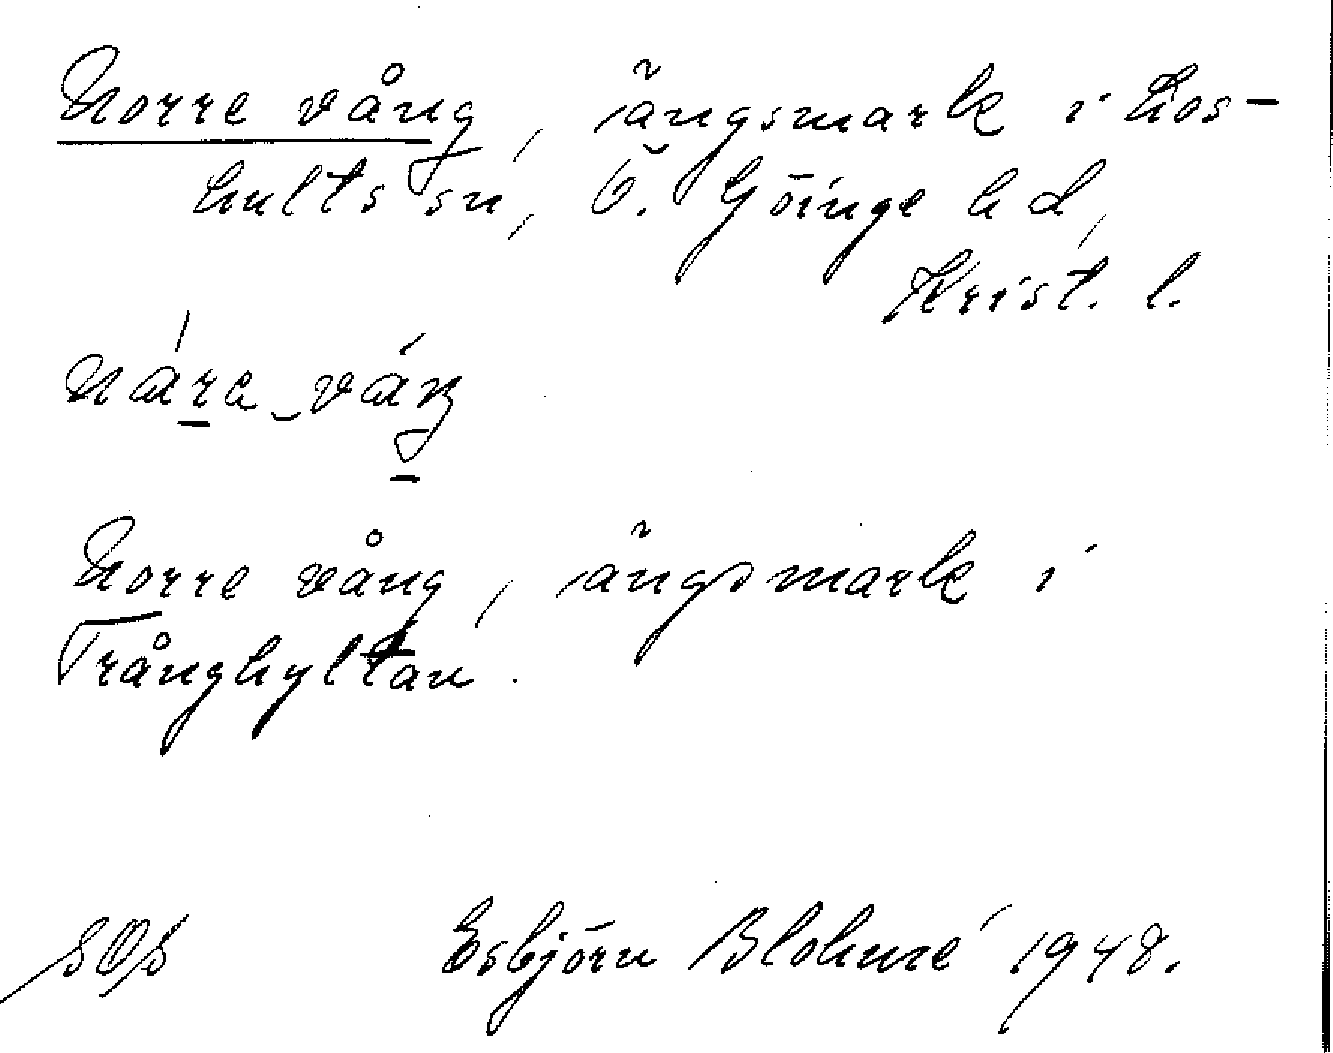 Norre vång, ängsmark i Los-
hults sn, Ö. Göinge hd,
Krist. l.
Norre vång, ängsmark i
Trånghyltan.
Esbjörn Blohmé 1948.